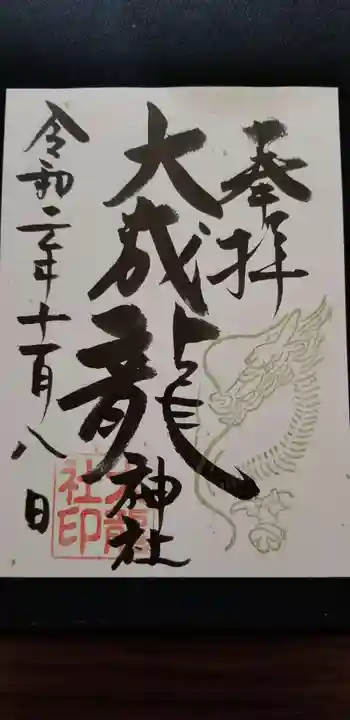 奉拝
大成龍神社
令和元年十一月八日
社印